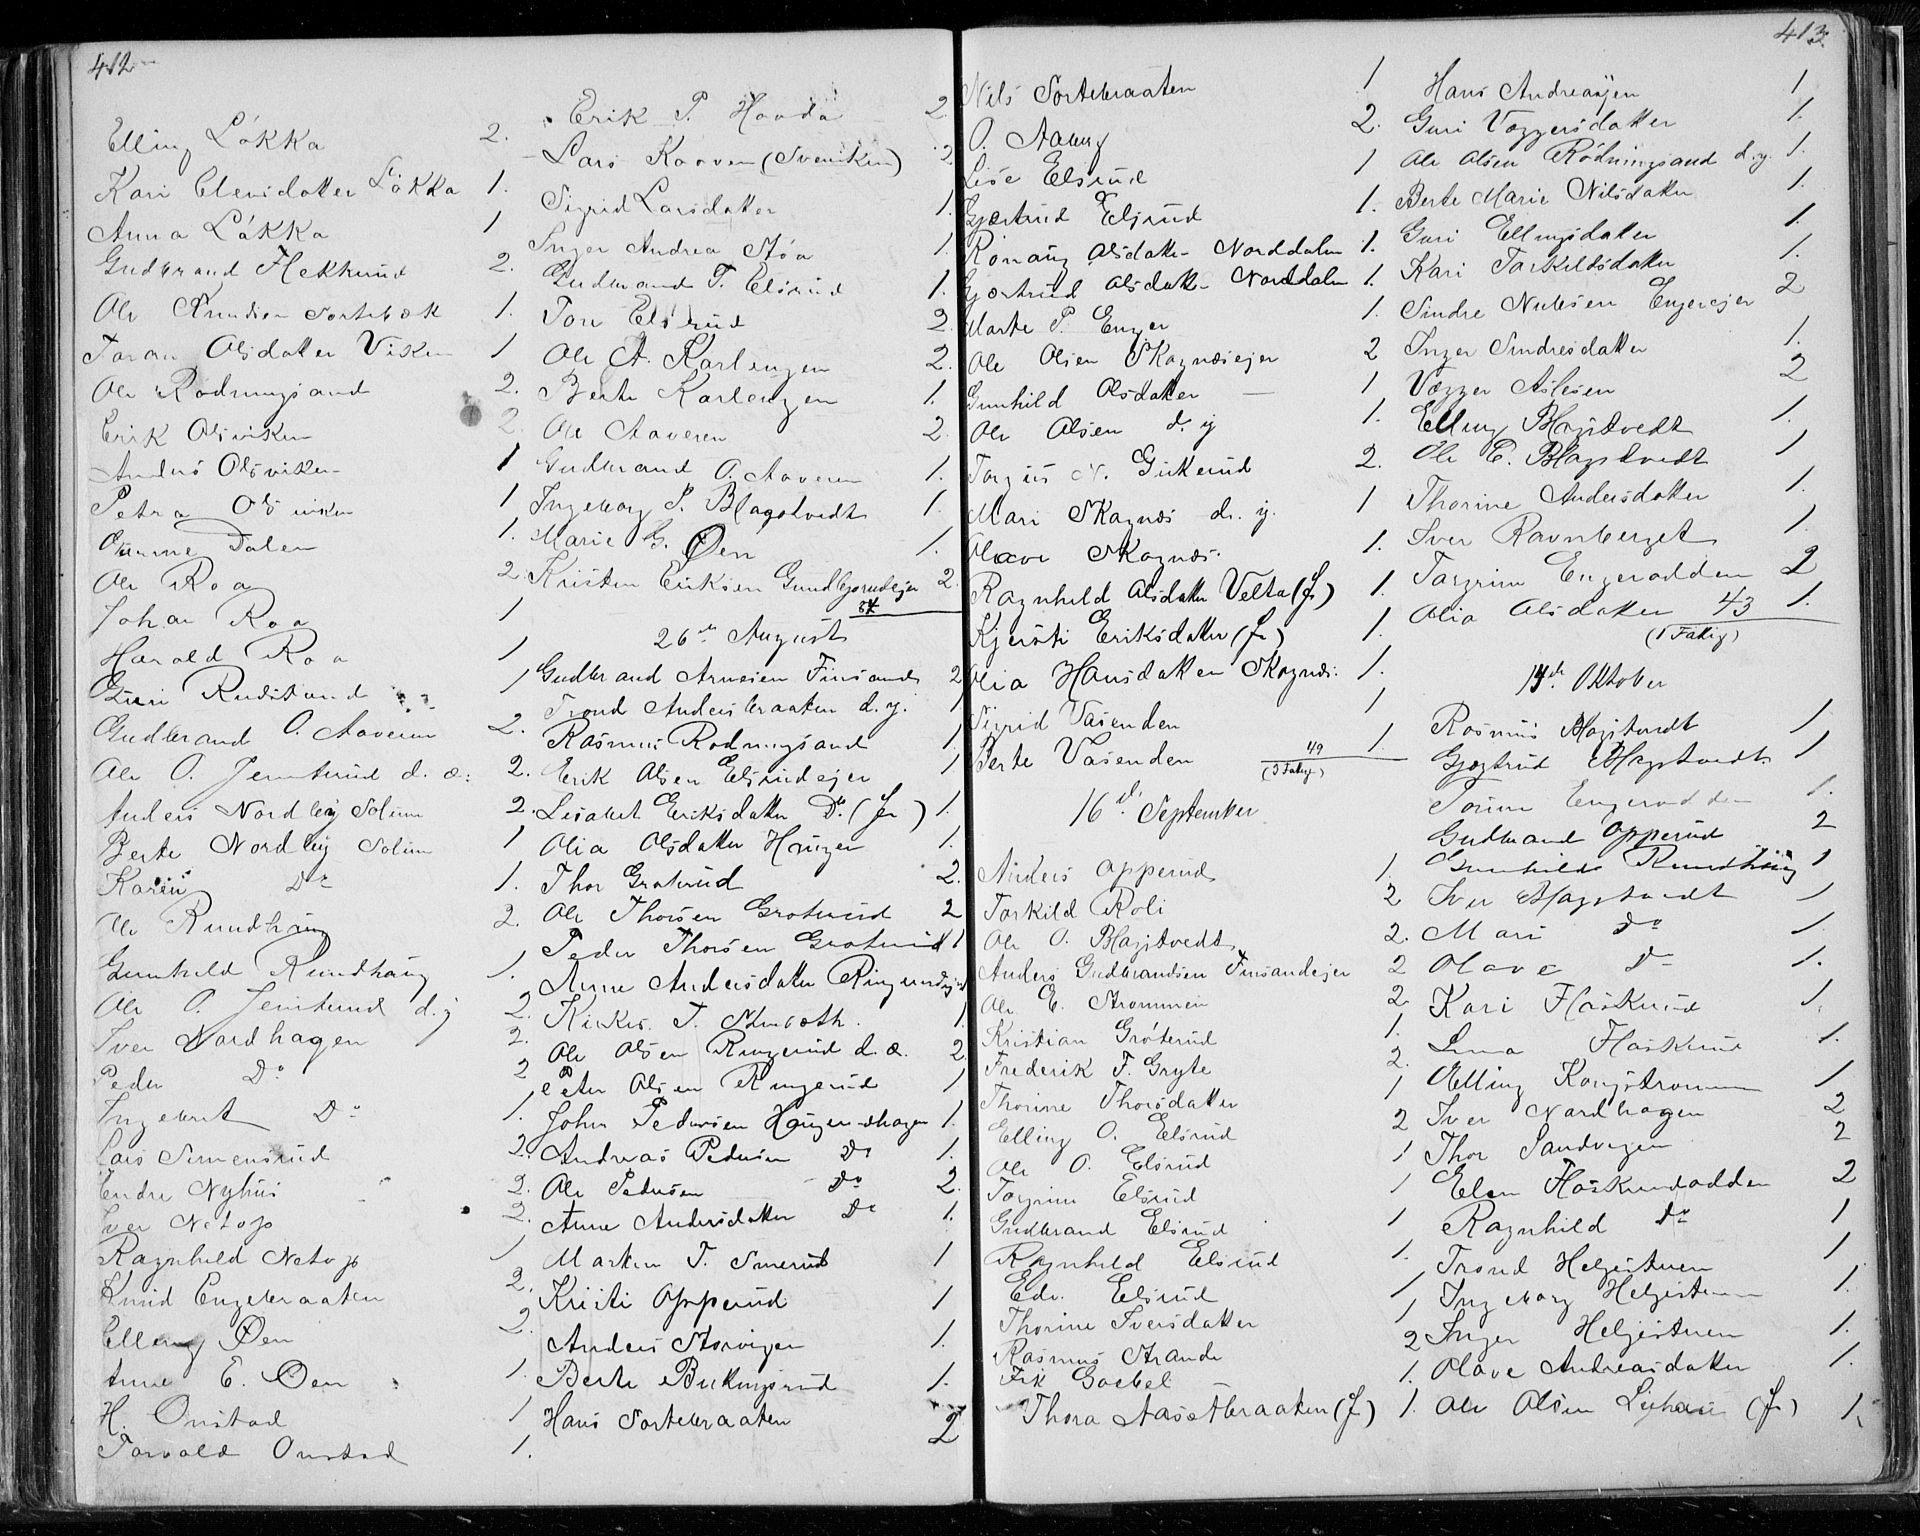 412
Elling Løkka 2.
Kari Elensdatter Løkka 1.
Anna Løkka 1
Gudbrand Flekkrud 2.
Ole Knudsen Sortebæk 1.
Taran Olsdatter Viken 1
Ole Rødningsand 2.
Erik Olsviken 2
Anders Olsviken 1
Petra Olsviken 1
Dalen 1.
Ole Roa 2
Johan Roa 1
Harald Roa 1
Guri Rudstrand 1
Gudbrand O. Aaveren 2.
Ole O. Jermtrud d. æ. 2.
Anders Nordby Solum 2.
Berte Nordby Solum 1
Karen Do 1.
Ole Rundhaug 2.
Gunhild Rundhaug 1.
Ole O. Jermtrud d. y 2.
Iver Nordhagen 2.
Peder Do 2
Ingebret Do 1.
Lars Simensrud 2.
Endre Nyhus 2.
Iver Netop 2.
Ragnhild Netop 1
Knud Engebraaten 2.
Elling Øen 2.
Anne E. Øen 1.
H. Onstad 1
Torvald Onstad 1.
Erik P. Hovda 2
Lars Kaaven (Sveniken) 2
Sigrid Larsdatter 1.
Inger Andrea Støa 1.
Gudbrand T. Elsrud 1.
Tore Elsrud 2.
Ole A. Karlengen 2.
Berte Karlengen 1.
Ole Aaveren 2.
Gudbrand O. Aaveren 1.
Ingeborg P. Blagstvedt 1.
Marie G. Øen 1.
Kristen Eriksen Gundbjørudejer 2.
84
26de August
Gudbrand Arnesen Finsand 2
Trond Andersbraaten d. y. 1
Rasmus Rødningsand 1
Erik Olsen Elsrudejer 1
Lisabet Eriksdatter Do (Fr) 1.
Olia Olsdatter Haugen 1.
Thor Grøterud 2.
Ole Thorsen Grøterud 2
Peder Thorsen Grøterud 1
Anne Andersdatter Ringerudejer
T. 1
Ole Olsen Ringerud d. æ. 2
Peter Olsen Ringerud 1
John Pedersen Haugerudhagen 1.
Andreas Pedersen Do 1.
Ole Pedersen Do 2.
Anne Andersdatter Do 1.
Marken T. Smerud 1
Kristi Opperud 1
Anders Storvigen 1.
Berte Bukkingsrud 1.
Hans Sortebraaten 2
413
Nils Sortebraaten 1
O. Aaberg 2.
Lise Elsrud 1
Gjertrud Elsrud 1.
Rønaug Olsdatter Norddalen 1.
Gjertrud Olsdatter Norddalen 1.
Marte P. Enger 1.
Ole Olsen Skagnæsejer 2
Gunhild Olsdatter — 1
Ole Olsen d. y 1.
Torgius N. Gukerud 2.
Mari Skagnæs d. y. 1
Olave Skagnæs. 1.
Ragnhild Olsdatter Velta (Fr) 1.
Kjersti Eriksdatter (Fr) 1.
Olia Hansdatter Skagnæs. 1.
Sigrid Vasenden 1
Berte Vasenden 1.
49
(3 Fattig)
16de September
Anders Opperud 1.
Torkild Roli 2
Ole O. Blagstvedt 2.
Anders Gudbrandsen Finsandejer 2
Ole E. Strømmen 2
Kristian Grøterud 1.
Frederik F. Gryte 2.
Thorine Thorsdatter 1
Elling O. Elsrud 2
Ole O. Elsrud 1
Torgrim Elsrud 1
Gudbrand Elsrud 1
Ragnhild Elsrud 1.
Edv. Elsrud 1
Thorine Iversdatter 1
Rasmus Strande 2
Frk Goebel 1.
Thora Aasetbraaten (Fr) 1.
Hans Andreasjen 1
Guri Vøggersdatter 1.
Ole Olsen Rødningsand d. y. 1.
Berte Marie Nilsdatter 1.
Guri Ellingsdatter 1.
Kari Torkildsdatter 1.
Sindre Nubsen Engerejer 2
Inger Sindresdatter 1.
Vøgger Aslesen 2
Elling Blagstvedt 1.
Ole E. Blagstvedt 1
Thorine Andersdatter 1.
Iver Ravnberget 1.
Torgrim Engerodden 2
Olia Olsdatter 43 1.
(1 Fattig)
14de Oktober
Rasmus Blagstvedt 1
Gjertrud Blagstvedt 1
Torine Engerodden 1.
Gudbrand Opperud 2
Gunhild Rundhaug 1
Iver Blagstvedt 1
Mari Do 1.
Olave Do 1.
Kari Flaskerud 1.
Lina Flaskerud 1.
Elling Kongstrømmen 1
Iver Nordhagen 2
Thor Sandvigen 2
Elen Flaskerudodden 2
Ragnhild Do 1
Trond Helgestuen 1
Ingeborg Helgestuen 1.
Inger Helgestuen 1.
Olave Andreasdatter 1.
Ole Olsen Lyhaus (Fr) 1.